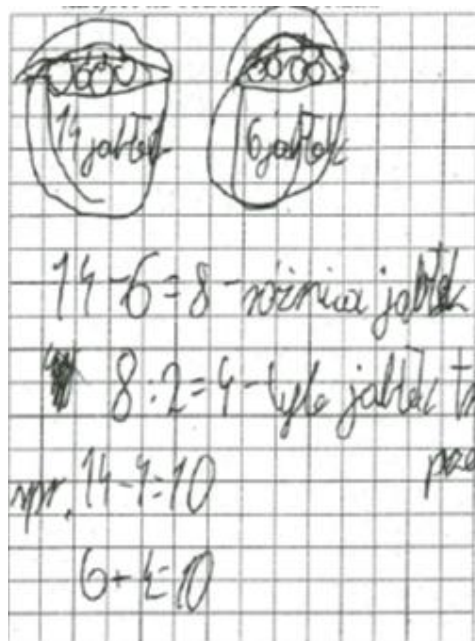 14 jabłek 6 jabłek
14-6=8 - różnica jabłek
8:2=4 - tyle jabłek
spr. 14-4=10
6+4=10